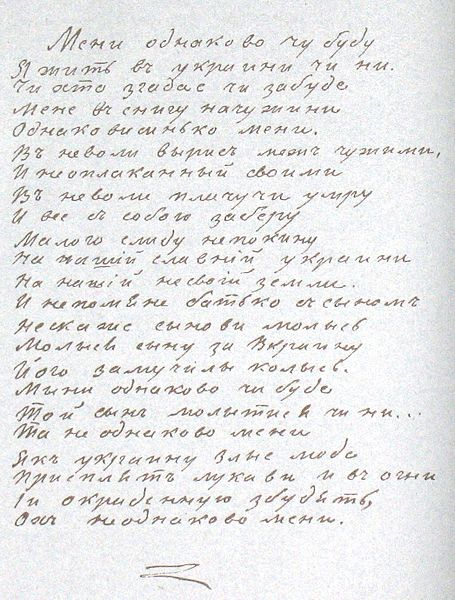 Мени однаково чу буду
Я жить въ украини чи ни.
Чи хто згадае чи забуде
Мене въ снигу начужини
Однаковисинько мени.
Въ неволи вырисъ межъ чужими,
И неоплаканный своими
Въ неволи плачучи умру
И все съ собою заберу
Малого слиду непокину
На нашій славній украини
На нашій несвоій земли.
И непомяне батько съ сыномъ
Нескаже сынови молысь
Молысь сыну за Вкраину
Його замучилы колысь.
Мини однаково чи буде
Той сынъ молытись чи ни...
Та не однаково мени
Якъ украину злые люде
Присплять лукави и въ огни
Іи окраденную збудять,
Охъ неоднаково мени.